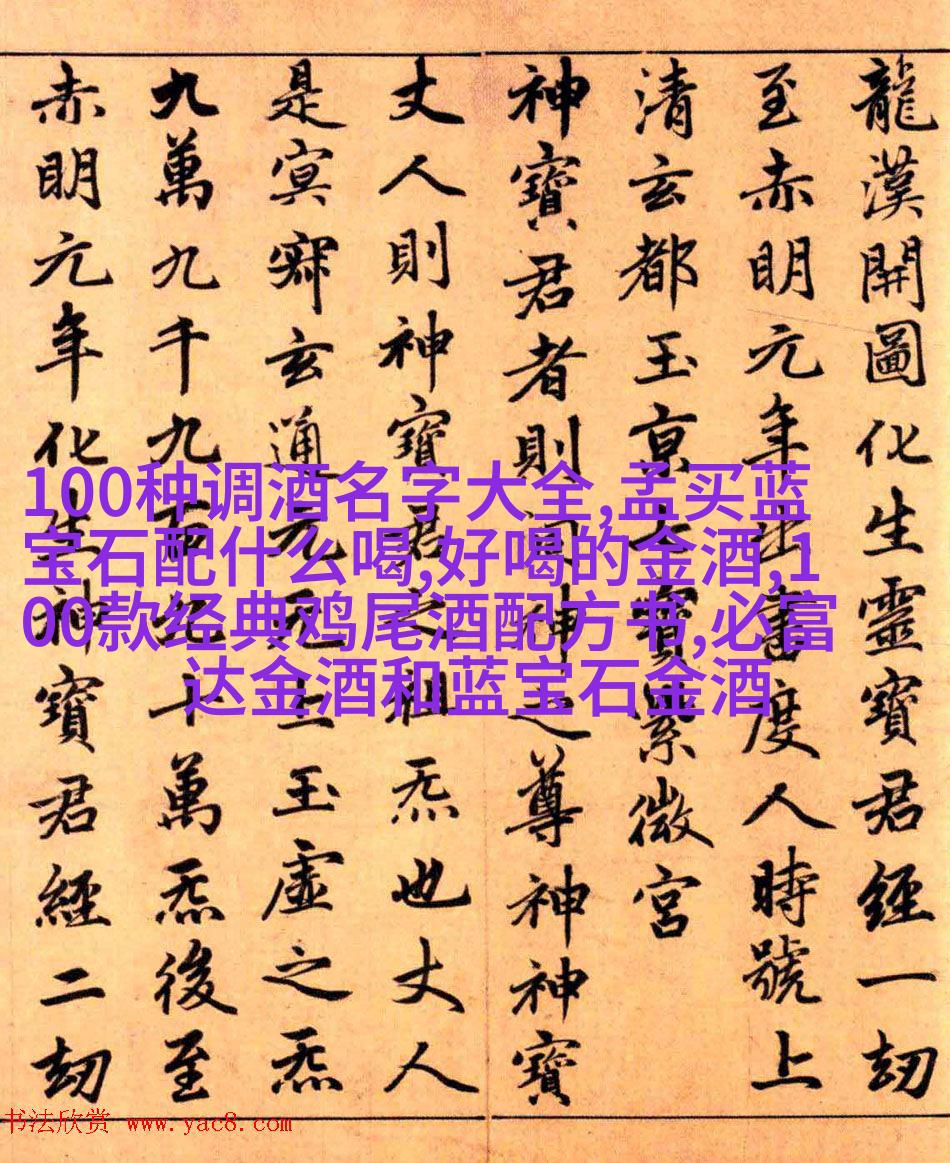 龍漢開圖化生靈寶君經一劫
至赤明元年出書度人時號上
清玄都玉京七寶紫微宮
神寶君者則洞神之尊神神寶
丈人則神寶君之祖炁也丈人
是冥寂玄通元无上玉虛之炁
九萬九千九百九十萬炁後至
赤明元年化生神寶君經二劫
100种调酒名字大全,孟买蓝
宝石配什么喝,好喝的金酒,1
00款经典鸡尾酒配方书,必富
达金酒和蓝宝石金酒
书法欣赏 www.yac8.com